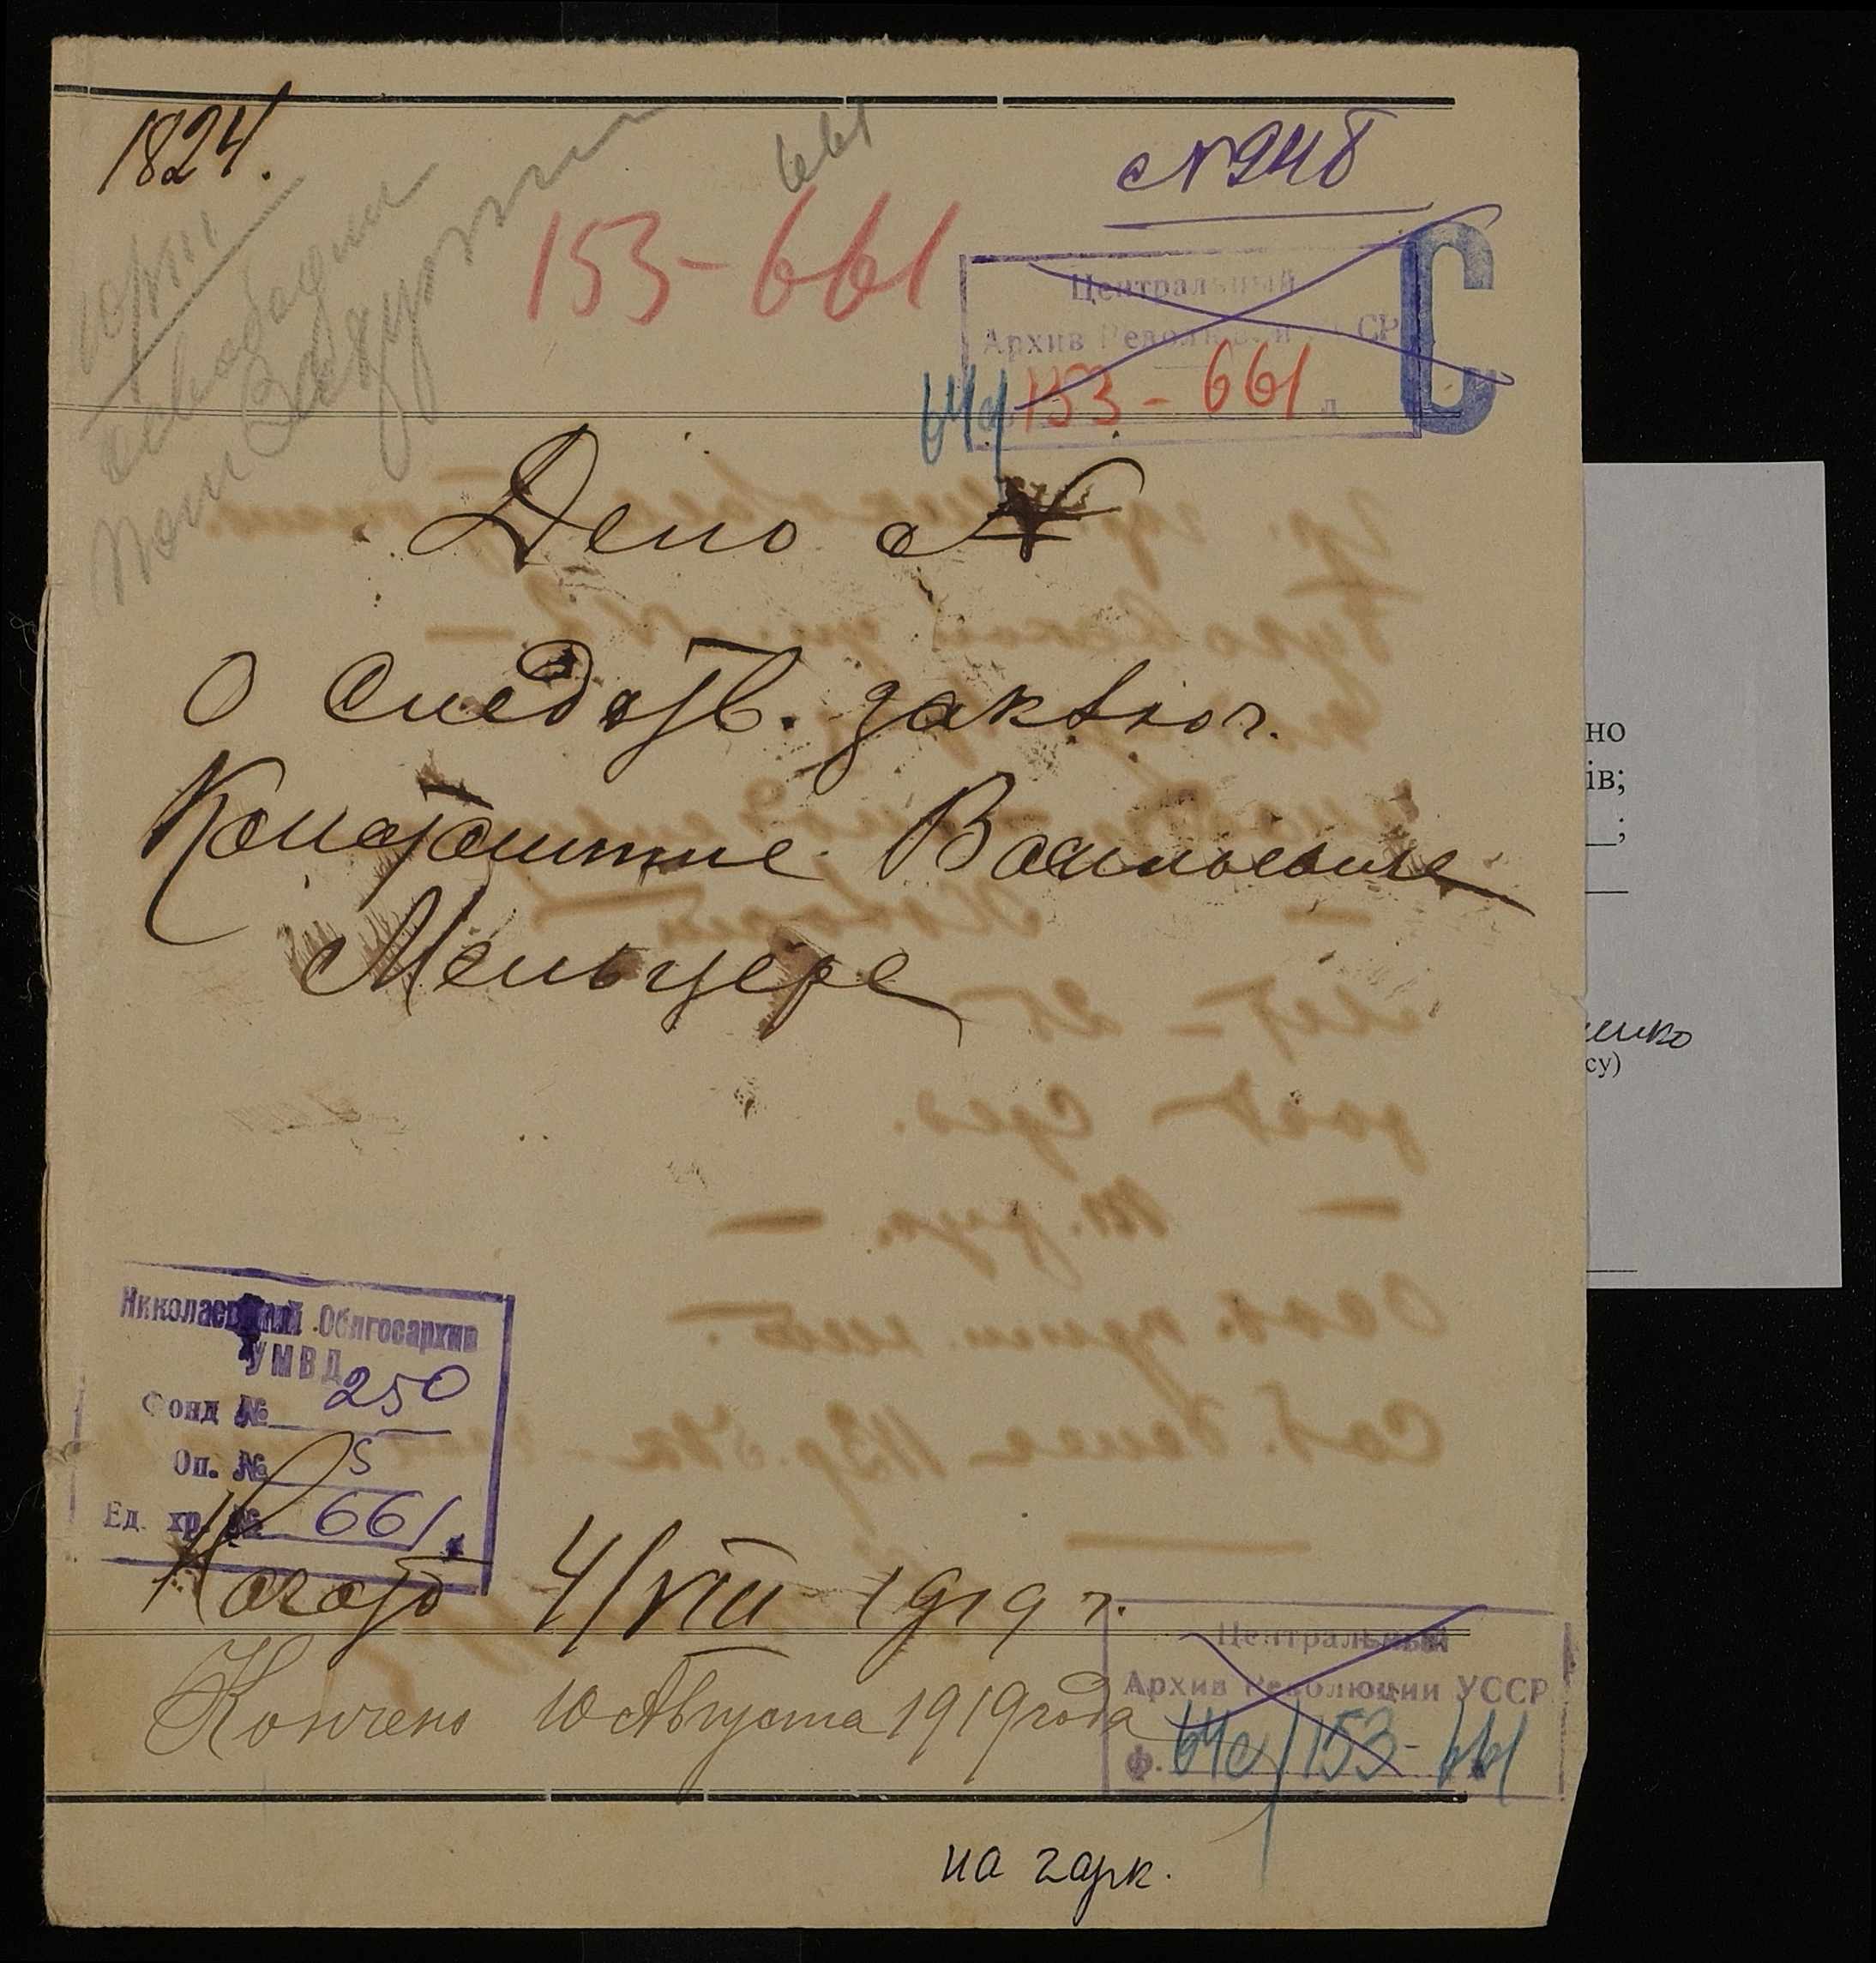 1824.
661
№ 948
153-661
С
Центральный
Архив Революции УССР
153-661 д
10/VIII
освобожден
Дело №
о следств. заключ.
Константине Васильевиче
Мельцере
Николаевский Облгосархив
УМВД
Фонд № 250
Оп. № 5
Ед. хр. № 661
Начато 4/VIII 1919 г.
Кончено 10 Августа 1919 года
Центральный
Архив Революции УССР
ф. 64с/153-661
на 2 арк.
но
ів;
енко
су)